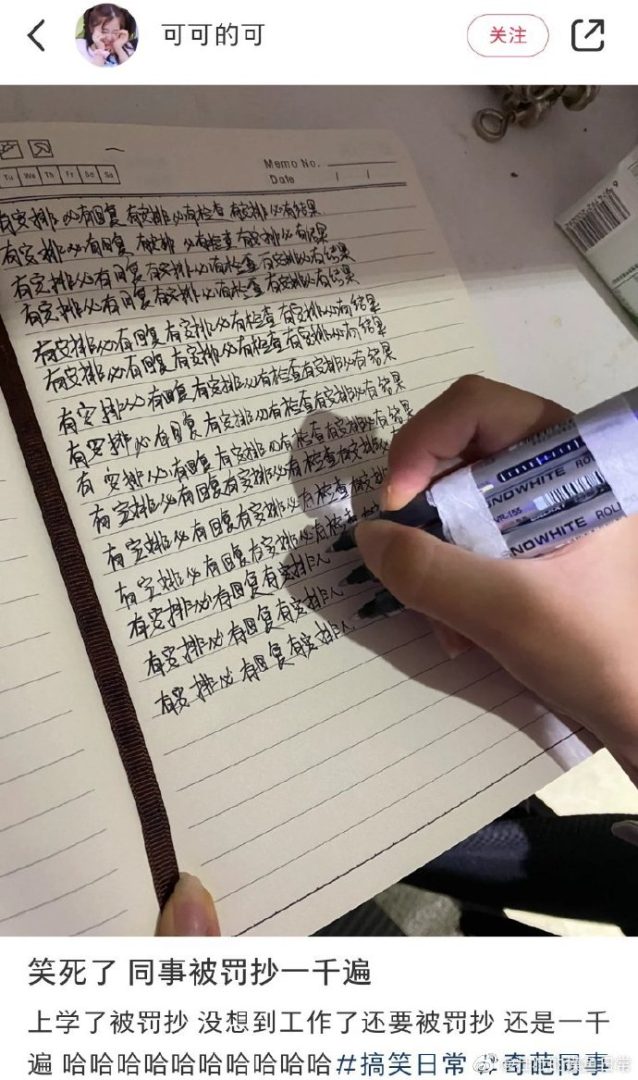 可可的可
关注
Memo No.
Date / /
Tu We Th Fr Sa Su
有安排必有回复 有安排必有检查 有安排必有结果
有安排必有回复 有安排必有检查 有安排必有结果
有安排必有回复 有安排必有检查 有安排必有结果
有安排必有回复 有安排必有检查 有安排必有结果
有安排必有回复 有安排必有检查 有安排必有结果
有安排必有回复 有安排必有检查 有安排必有结果
有安排必有回复 有安排必有检查 有安排必有结果
有安排必有回复 有安排必有检查 有安排必有结果
有安排必有回复 有安排必有检查 有安排必有结果
有安排必有回复 有安排必有检查 有安排
有安排必有回复 有安排必有检查 有安排
有安排必有回复 有安排必有检
有安排必有回复 有安排必
有安排必有回复 有安排必
有安排必有回复 有安排必
SNOWHITE ROLL
VR-155
SNOWHITE ROLL
笑死了 同事被罚抄一千遍
上学了被罚抄 没想到工作了还要被罚抄 还是一千
遍 哈哈哈哈哈哈哈哈哈哈#搞笑日常 #奇葩同事